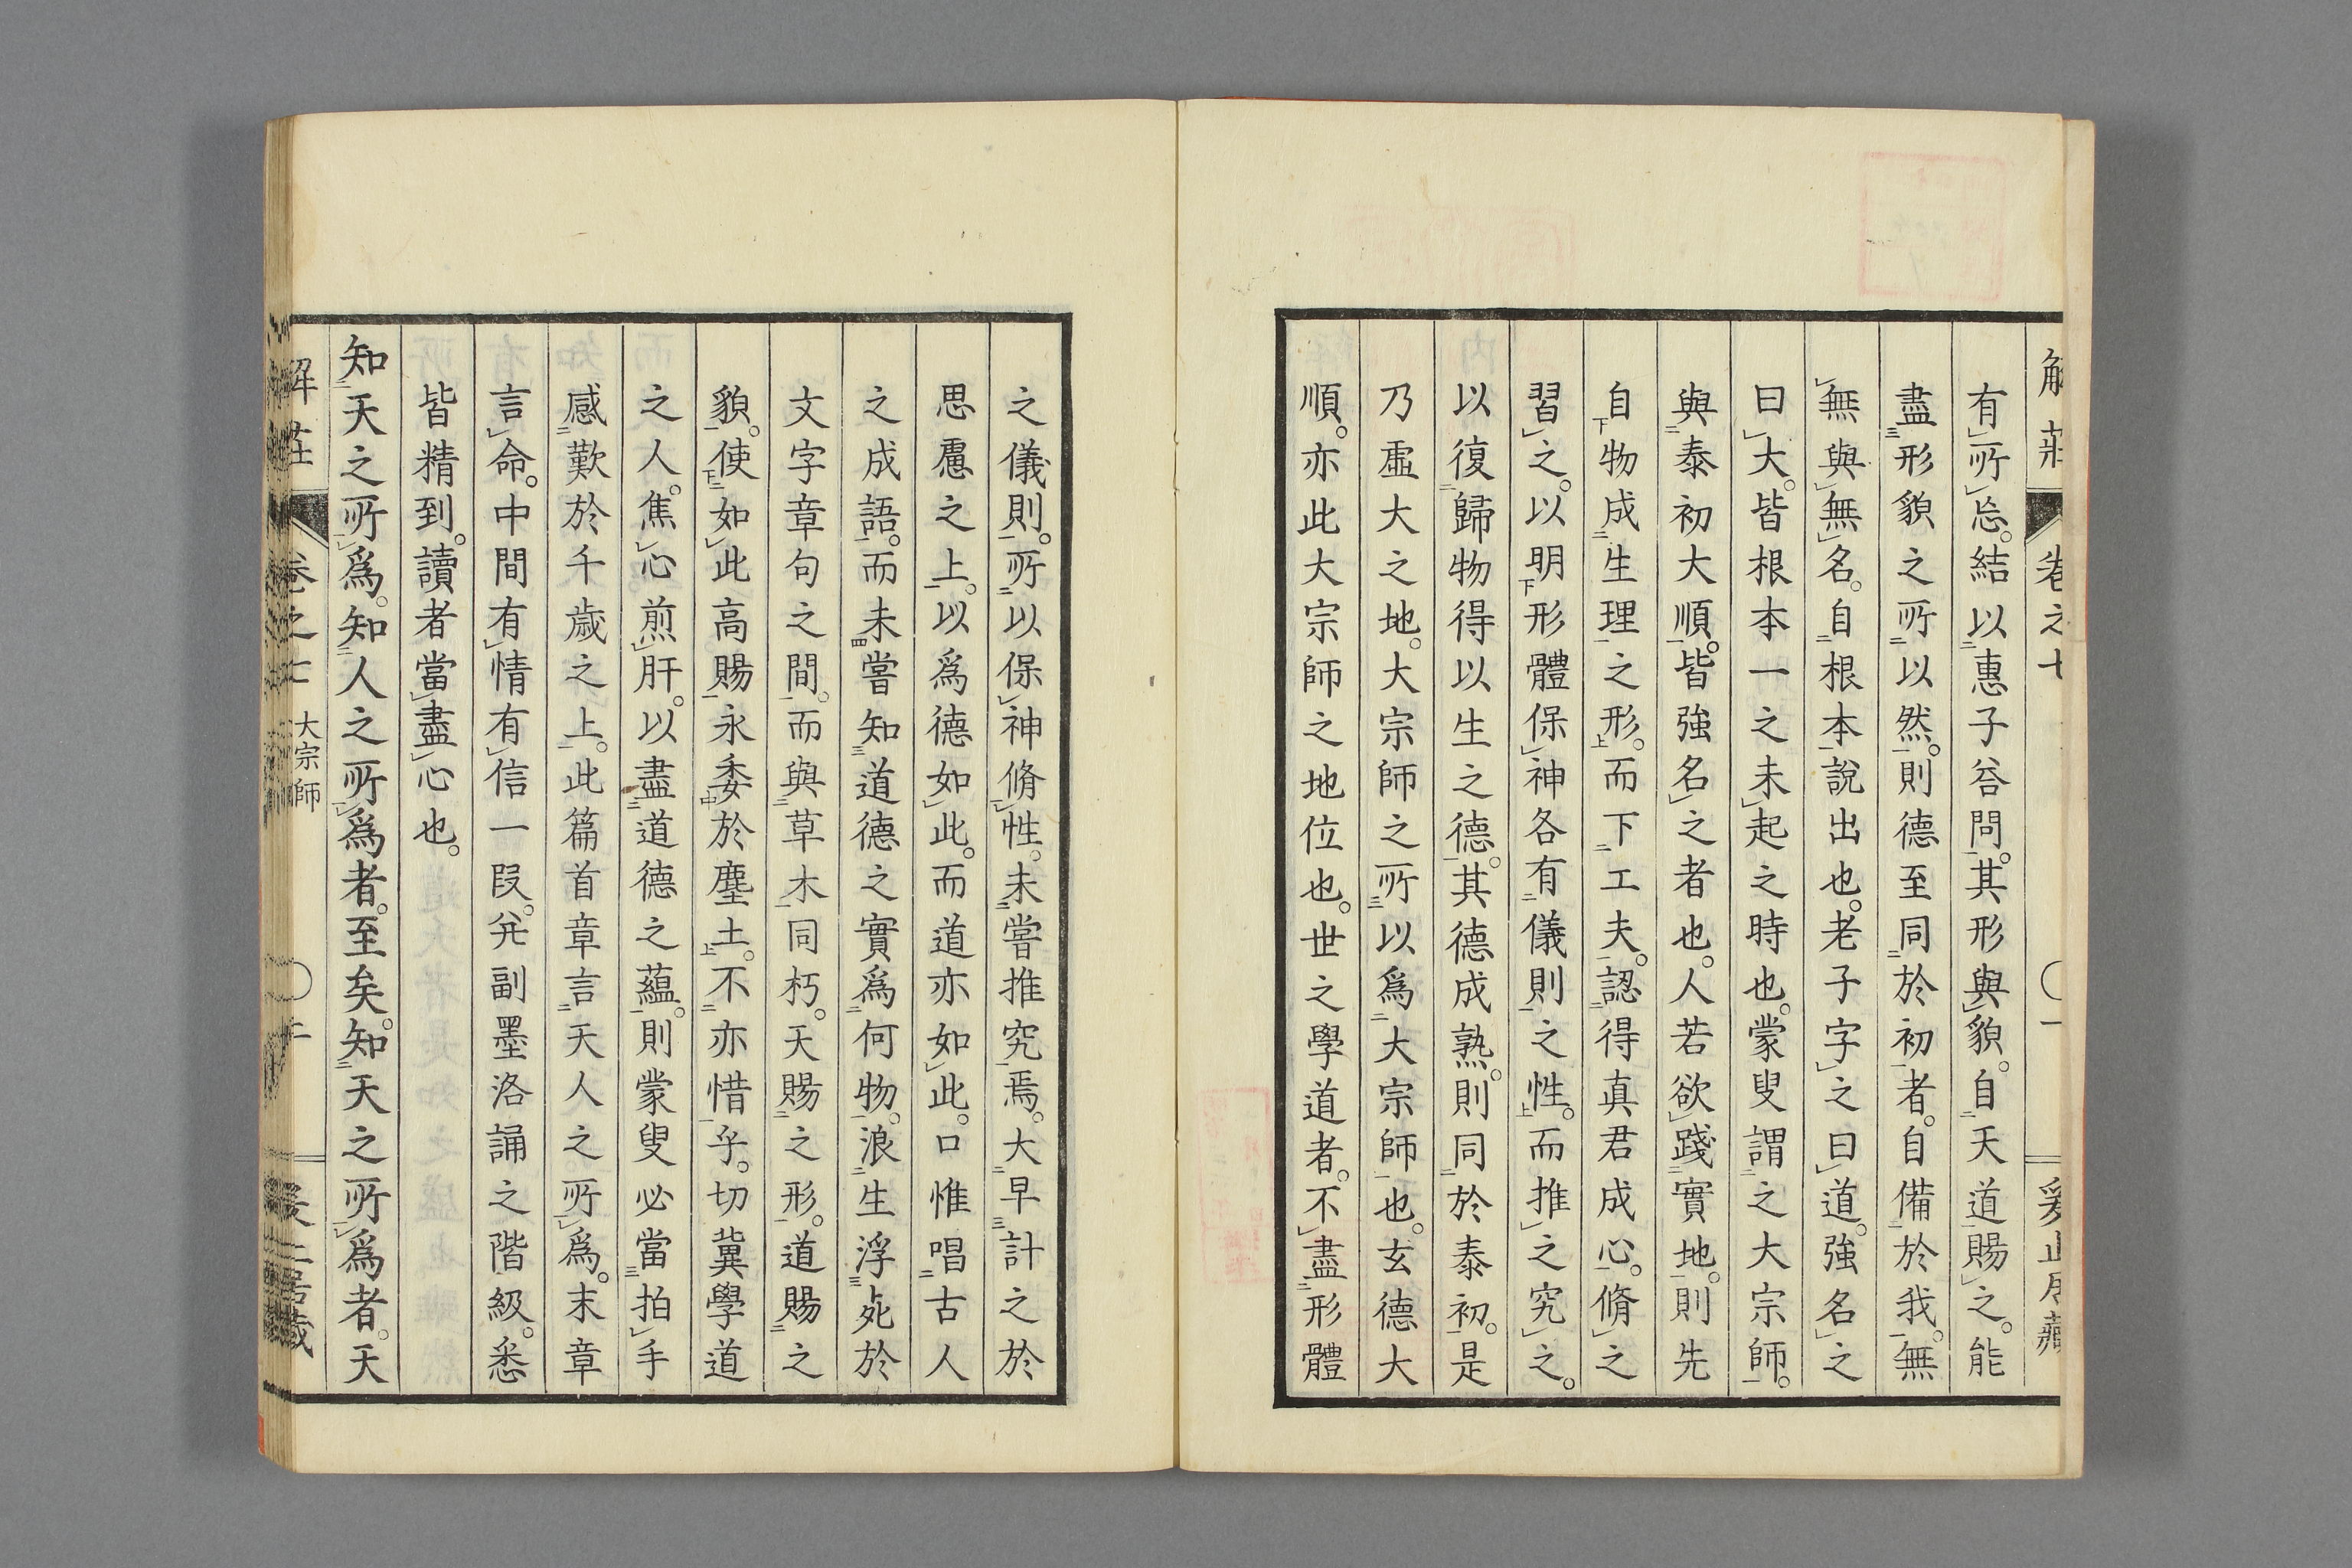 解莊 卷之七 〇一 爰止居藏
有所忘。結以惠子荅問。其形與貌。自天道賜之。能
盡形貌之所以然。則德至同於初者。自備於我。無
無與無名。自根本說出也。老子字之曰道。強名之
曰大。皆根本一之未起之時也。蒙叟謂之大宗師。
與泰初大順。皆強名之者也。人若欲踐實地。則先
自物成生理之形。而下工夫。認得真君成心。脩之
習之。以明形體保神各有儀則之性。而推之究之。
以復歸物得以生之德。其德成熟。則同於泰初。是
乃虛大之地。大宗師之所以爲大宗師也。玄德大
順。亦此大宗師之地位也。世之學道者。不盡形體
之儀則。所以保神脩性。未嘗推究焉。大早計之於
思慮之上。以爲德如此。而道亦如此。口惟唱古人
之成語。而未嘗知道德之實爲何物。浪生浮死於
文字章句之間。而與草木同朽。天賜之形。道賜之
貌。使如此高賜永委於塵土。不亦惜乎。切冀學道
之人。焦心煎肝。以盡道德之蘊。則蒙叟必當拍手
感歎於千歲之上。此篇首章言天人之所爲。末章
言命。中間有情有信一段。竝副墨洛誦之階級。悉
皆精到。讀者當盡心也。
知天之所爲。知人之所爲者。至矣。知天之所爲者。天
解莊 卷之七 大宗師 〇 爰止居藏